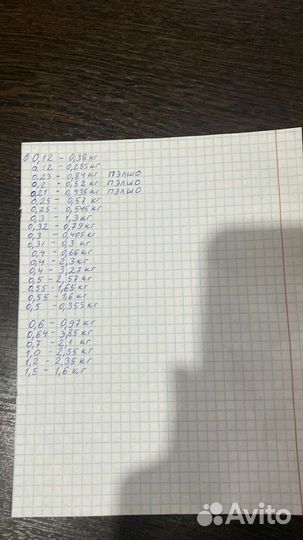 ∅ 0,12 - 0,38 кг
0,12 - 0,285 кг
0,23 - 0,84 кг ПЭЛШО
0,2 - 0,52 кг ПЭЛШО
0,21 - 0,435 кг ПЭЛШО
0,25 - 0,57 кг
0,25 - 0,545 кг
0,3 - 1,3 кг
0,32 - 0,79 кг
0,3 - 0,405 кг
0,31 - 0,3 кг
0,4 - 0,66 кг
0,4 - 2,3 кг
0,4 - 3,27 кг
0,5 - 2,57 кг
0,55 - 1,65 кг
0,55 - 1,6 кг
0,5 - 0,355 кг
0,6 - 0,97 кг
0,64 - 3,85 кг
0,7 - 2,1 кг
1,0 - 2,55 кг
1,2 - 2,35 кг
1,5 - 1,6 кг
Avito